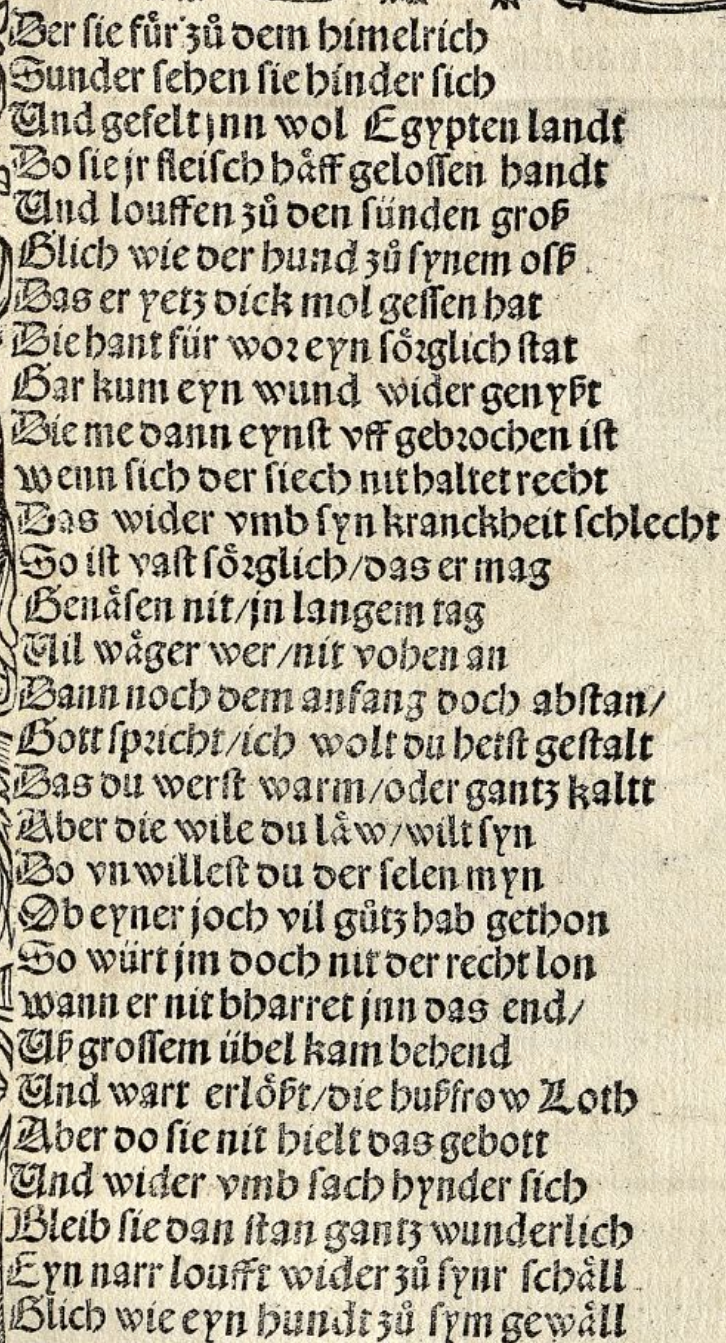 Der sie für zů dem himelrich
Sunder sehen sie hinder sich
Und gefelt jnn wol Egypten landt
Do sie jr fleisch häff gelossen handt
Und louffen zů den sünden groß
Glich wie der hund zů synem osß
Das er yetz dick mol gessen hat
Die hant für wor eyn sörglich stat
Gar kum eyn wund wider genyßt
Die me dann eynst vff gebrochen ist
wenn sich der siech nit haltet recht
Das wider vmb syn kranckheit schlecht
So ist vast sörglich/das er mag
Genäsen nit/jn langem tag
Vil wäger wer/nit vohen an
Dann noch dem anfang doch abstan/
Gott spricht/ich wolt du hetst gestalt
Das du werst warm/oder gantz kaltt
Aber die wile du läw/wilt syn
Do vnwillest du der selen myn
Ob eyner joch vil gůtz hab gethon
So würt jm doch nit der recht lon
wann er nit bharret jnn das end/
Uß grossem übel kam behend
Und wart erlößt/die hußfrow Loth
Aber do sie nit hielt das gebott
Und wider vmb sach hynder sich
Bleib sie dan stan gantz wunderlich
Eyn narr loufft wider zů synr schäll
Glich wie eyn hundt zů sym gewäll